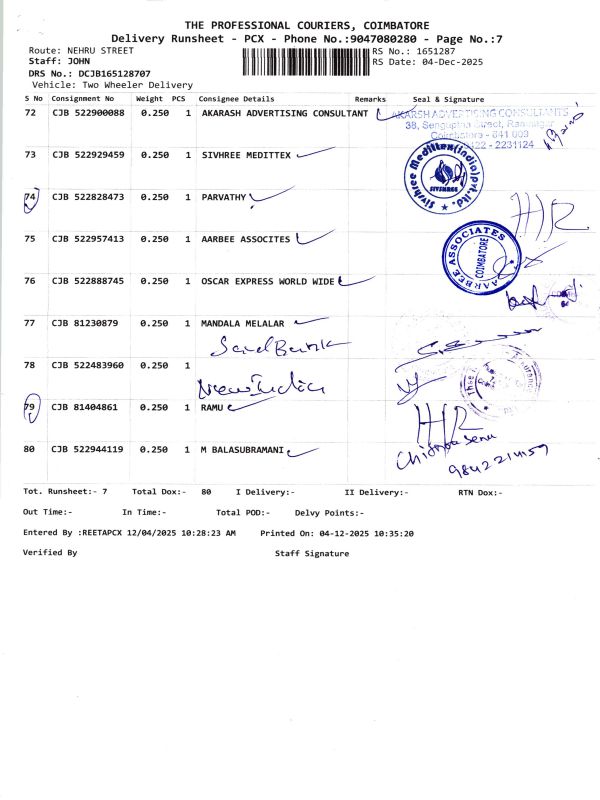 THE PROFESSIONAL COURIERS, COIMBATORE
Delivery Runsheet - PCX - Phone No.:9047080280 - Page No.:7
Route: NEHRU STREET RS No.: 1651287
Staff: JOHN RS Date: 04-Dec-2025
DRS No.: DCJB165128707
Vehicle: Two Wheeler Delivery
S No Consignment No Weight PCS Consignee Details Remarks Seal & Signature
72 CJB 522900088 0.250 1 AKARASH ADVERTISING CONSULTANT
AKARSH ADVERTISING CONSULTANTS
38, Sengupta Street, Ramnagar
Coimbatore - 641 009
0422 - 2231124
73 CJB 522929459 0.250 1 SIVHREE MEDITTEX
Sivshree Medittex(india)pvt.ltd.
SIVSHREE
74 CJB 522828473 0.250 1 PARVATHY
75 CJB 522957413 0.250 1 AARBEE ASSOCITES
AARBEE ASSOCIATES
COIMBATORE
76 CJB 522888745 0.250 1 OSCAR EXPRESS WORLD WIDE
77 CJB 81230879 0.250 1 MANDALA MELALAR
78 CJB 522483960 0.250 1
New India
79 CJB 81404861 0.250 1 RAMU
80 CJB 522944119 0.250 1 M BALASUBRAMANI
Tot. Runsheet:- 7 Total Dox:- 80 I Delivery:- II Delivery:- RTN Dox:-
Out Time:- In Time:- Total POD:- Delvy Points:-
Entered By :REETAPCX 12/04/2025 10:28:23 AM Printed On: 04-12-2025 10:35:20
Verified By Staff Signature